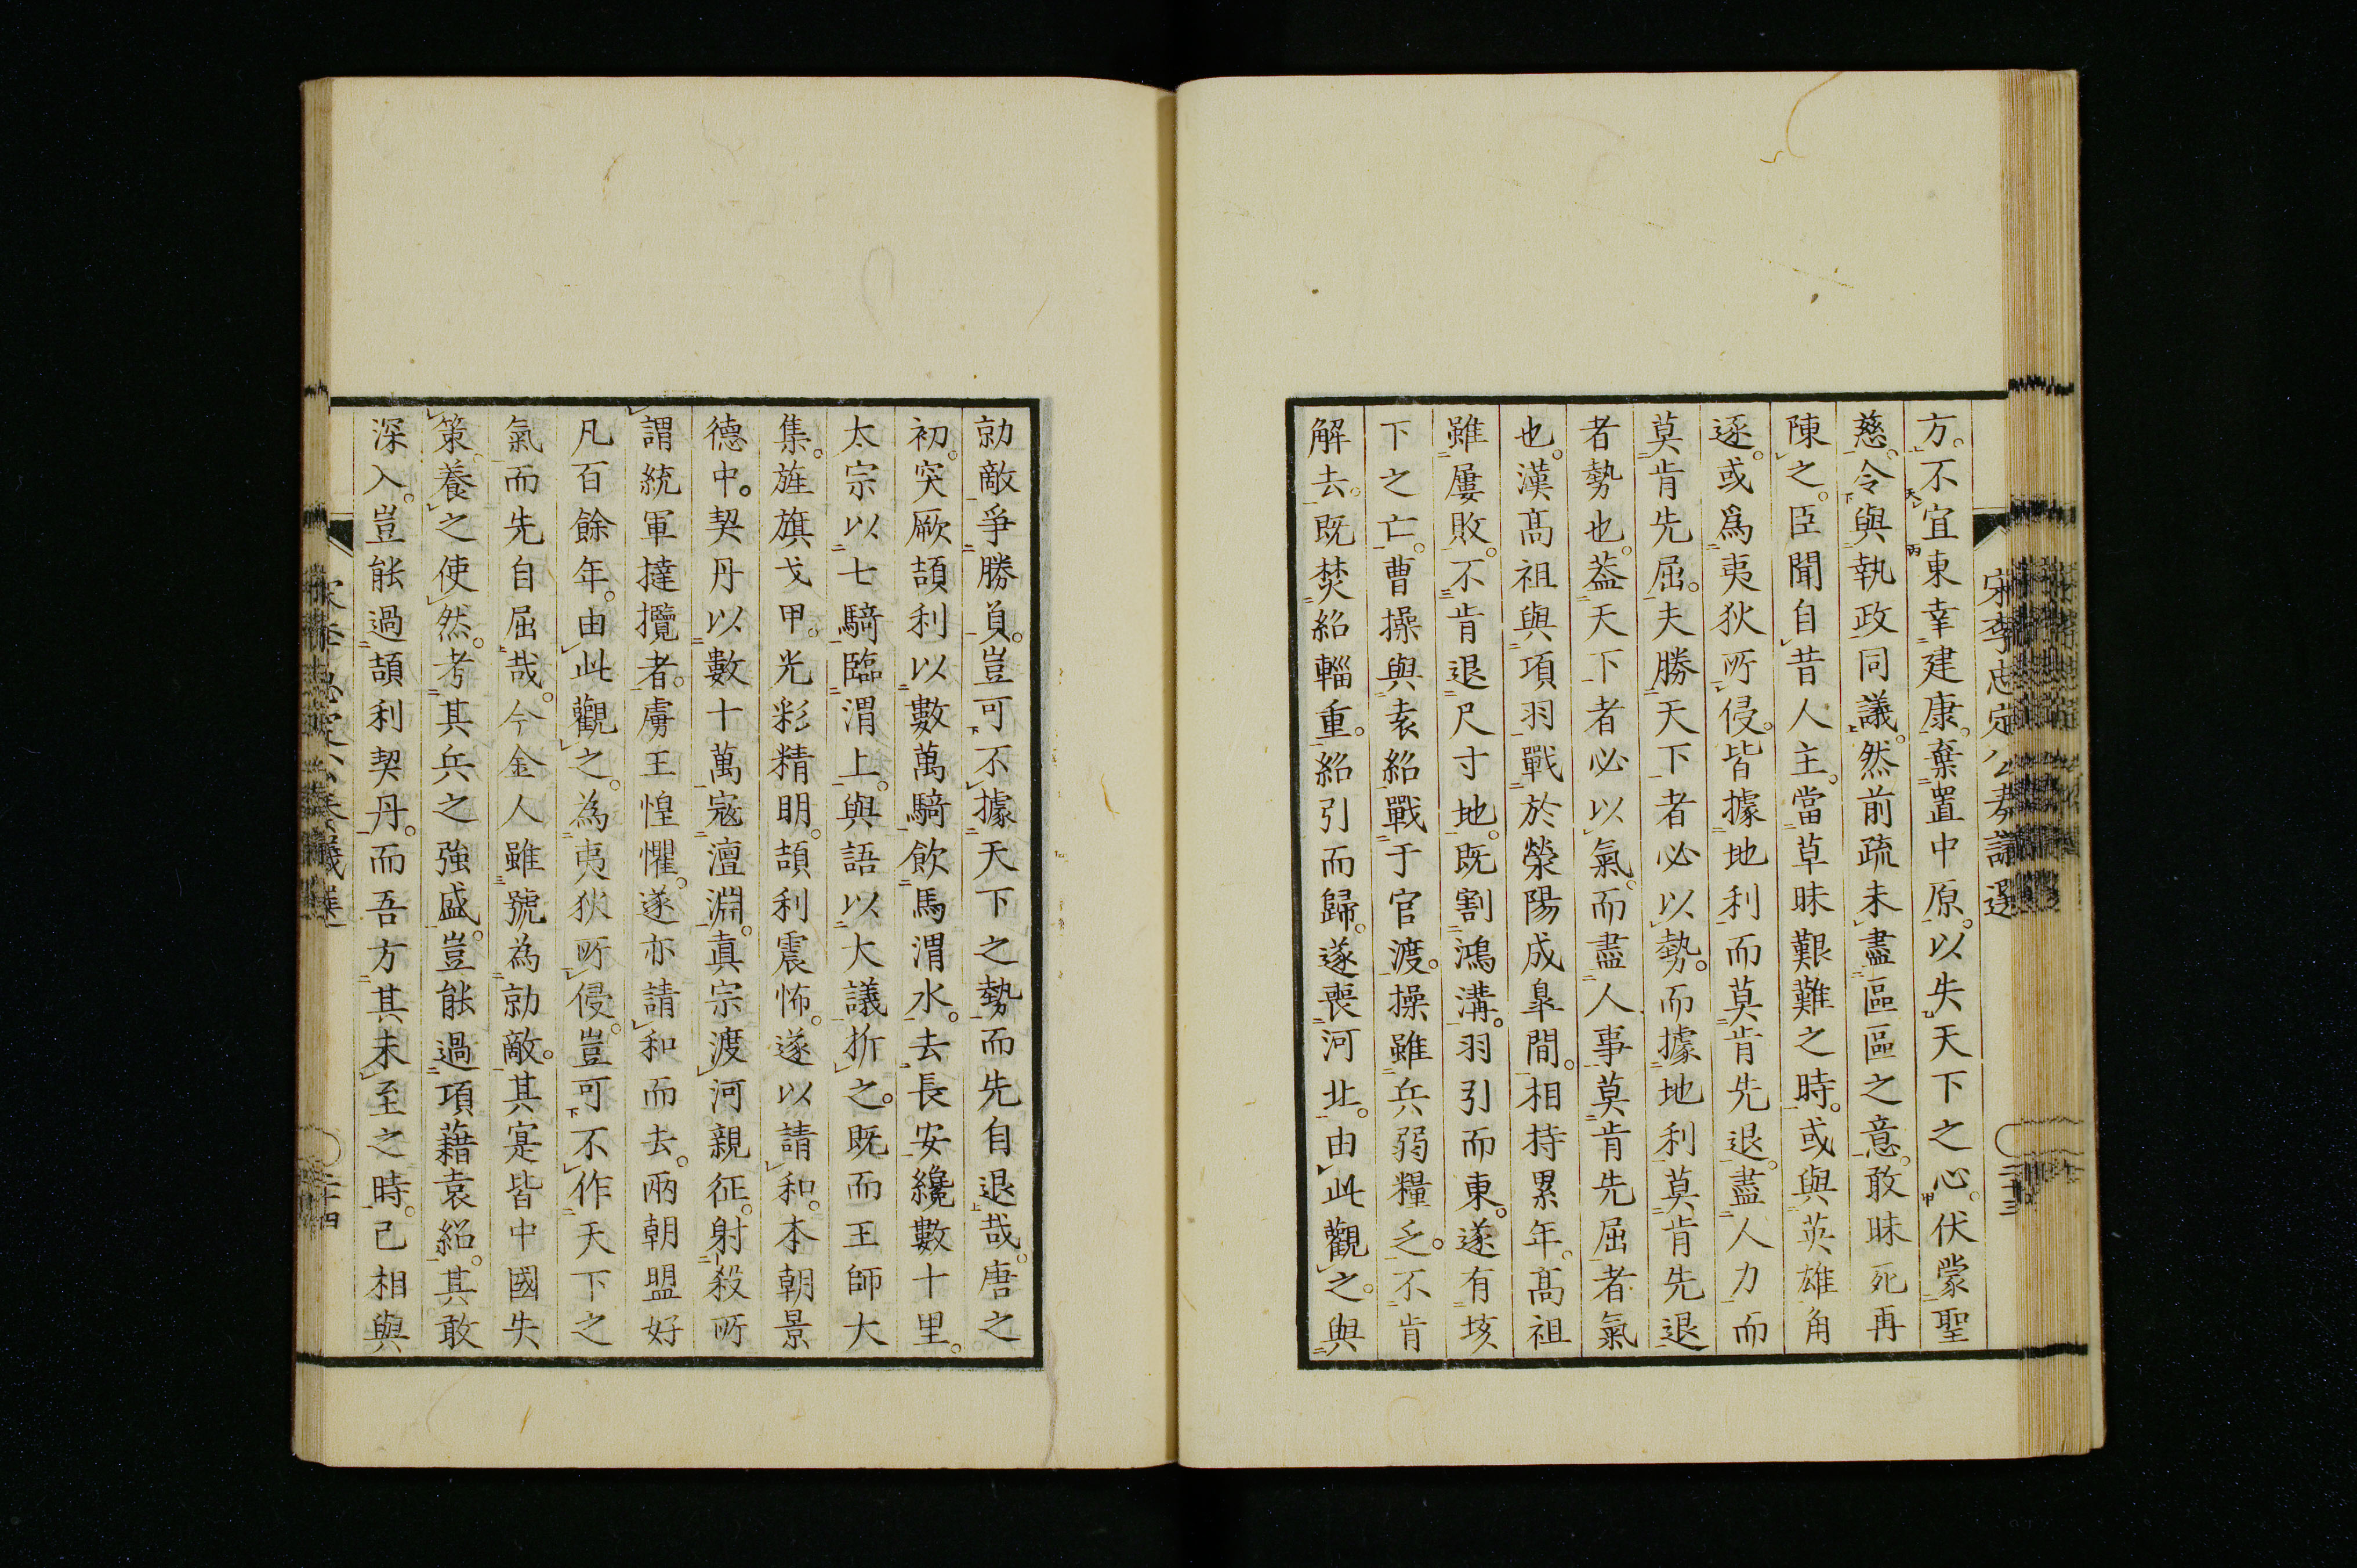 宋李忠定公奏議選
方。不宜東幸建康。棄置中原。以失天下之心。伏蒙聖
慈。令與執政同議。然前疏未盡區區之意。敢昧死再
陳之。臣聞自昔人主。當草昧艱難之時。或與英雄角
逐。或爲夷狄所侵。皆據地利而莫肯先退。盡人力而
莫肯先屈。夫勝天下者必以勢。而據地利莫肯先退
者勢也。葢天下者必以氣。而盡人事莫肯先屈者氣
也。漢高祖與項羽戰於滎陽成臯間。相持累年。高祖
雖屢敗。不肯退尺寸地。既割鴻溝。羽引而東。遂有垓
下之亡。曹操與袁紹戰于官渡。操雖兵弱糧乏。不肯
解去。既焚紹輜重。紹引而歸。遂喪河北。由此觀之。與
勍敵爭勝負。豈可不據天下之勢而先自退哉。唐之
初。突厥頡利以數萬騎飮馬渭水。去長安纔數十里。
太宗以七騎臨渭上。與語以大議折之。既而王師大
集。旌旗戈甲。光彩精明。頡利震怖。遂以請和。本朝景
德中。契丹以數十萬寇澶淵。真宗渡河親征。射殺所
謂統軍撻攬者。虜王惶懼。遂亦請和而去。兩朝盟好
凡百餘年。由此觀之。為夷狄所侵。豈可不作天下之
氣而先自屈哉。今金人雖號為勍敵。其寔皆中國失
策養之使然。考其兵之強盛。豈能過項藉袁紹。其敢
深入。豈能過頡利契丹。而吾方其未至之時。已相與